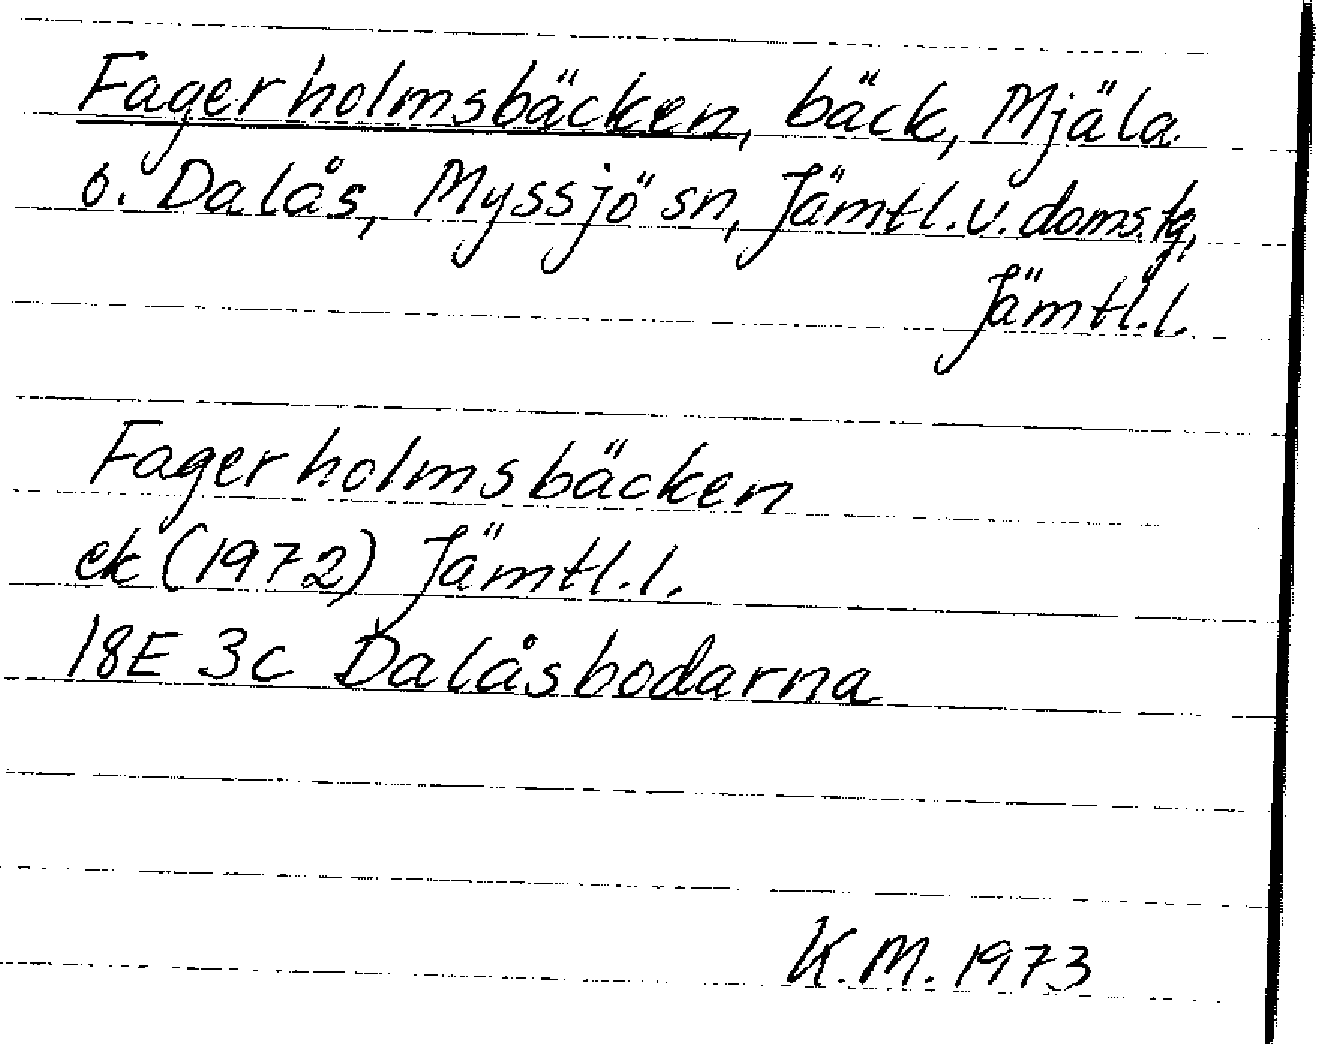 Fagerholmsbäcken, bäck, Mjäla
o. Dalås, Myssjö sn, Jämtl. v. doms. tg,
Jämtl. l.
Fagerholmsbäcken
ek (1972) Jämtl. l.
18E 3c Dalåsbodarna
K. M. 1973